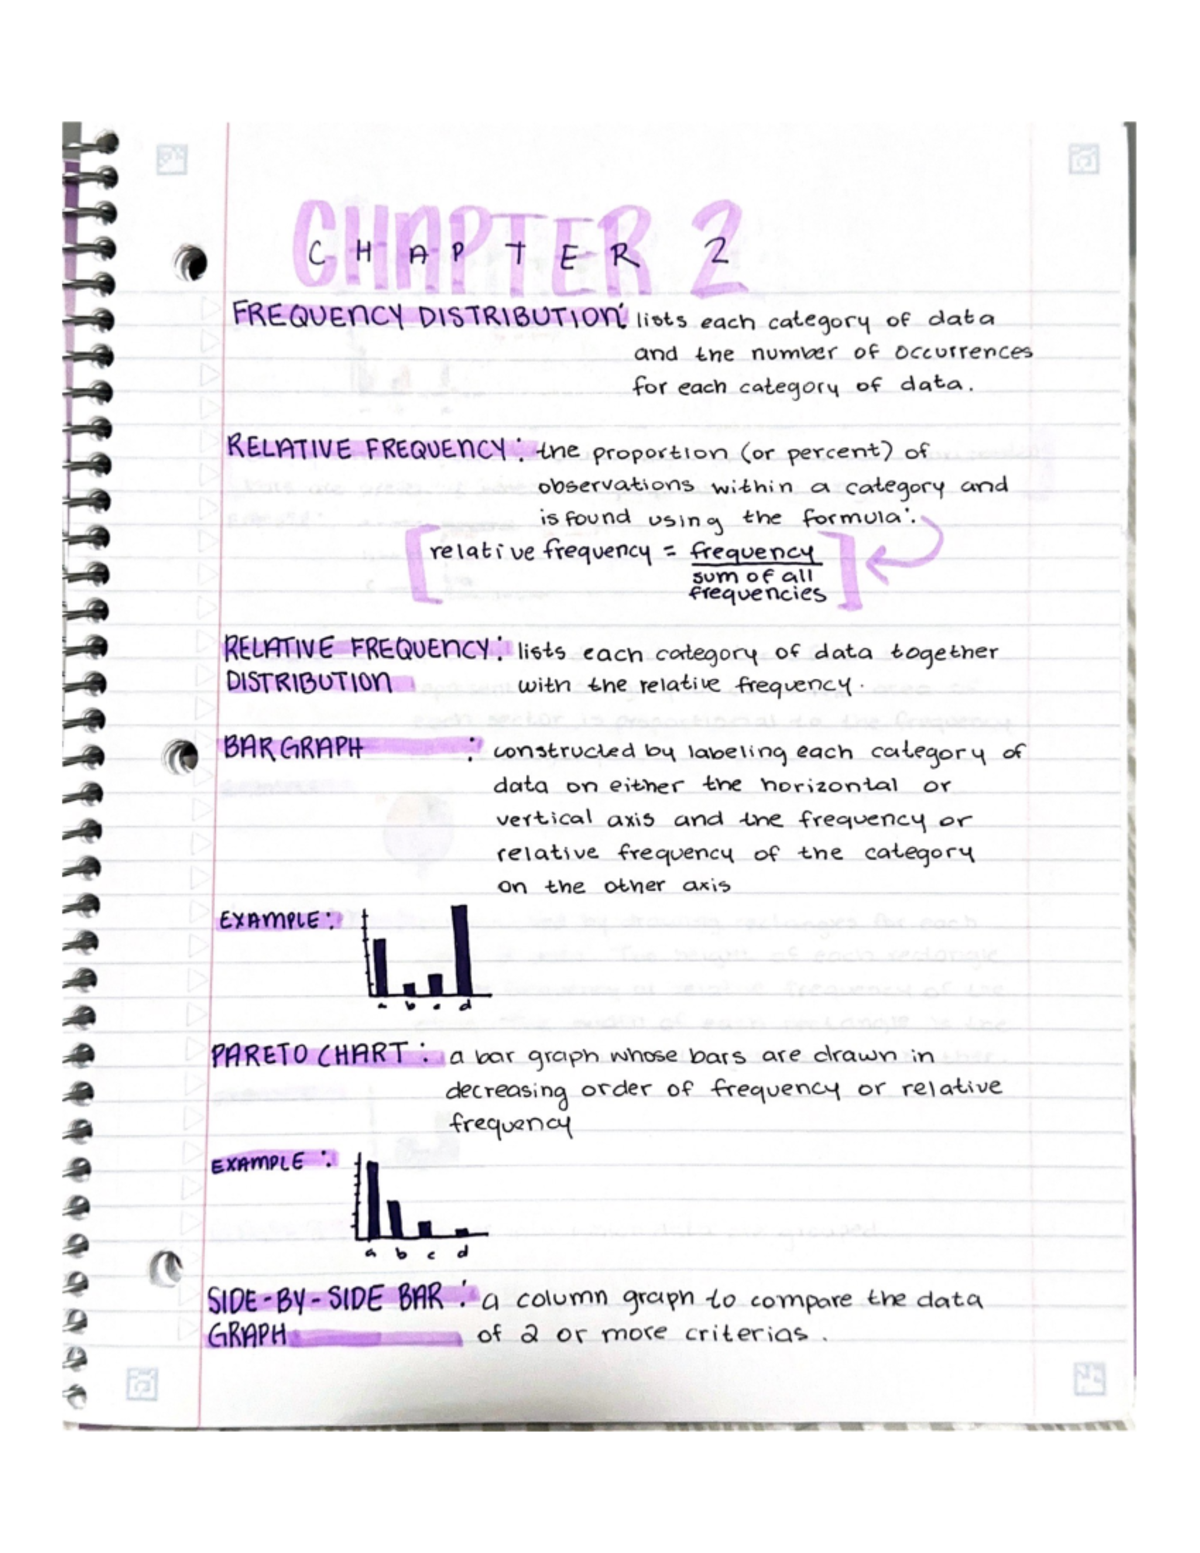 CHAPTER 2
CHAPTER 2
FREQUENCY DISTRIBUTION: lists each category of data
and the number of occurrences
for each category of data.
RELATIVE FREQUENCY: the proportion (or percent) of
observations within a category and
is found using the formula:
relative frequency = frequency
sum of all
frequencies
RELATIVE FREQUENCY: lists each category of data together
DISTRIBUTION with the relative frequency.
BAR GRAPH : constructed by labeling each category of
data on either the horizontal or
vertical axis and the frequency or
relative frequency of the category
on the other axis
EXAMPLE:
a b c d
PARETO CHART: a bar graph whose bars are drawn in
decreasing order of frequency or relative
frequency
EXAMPLE:
a b c d
SIDE-BY-SIDE BAR: a column graph to compare the data
GRAPH of 2 or more criterias.